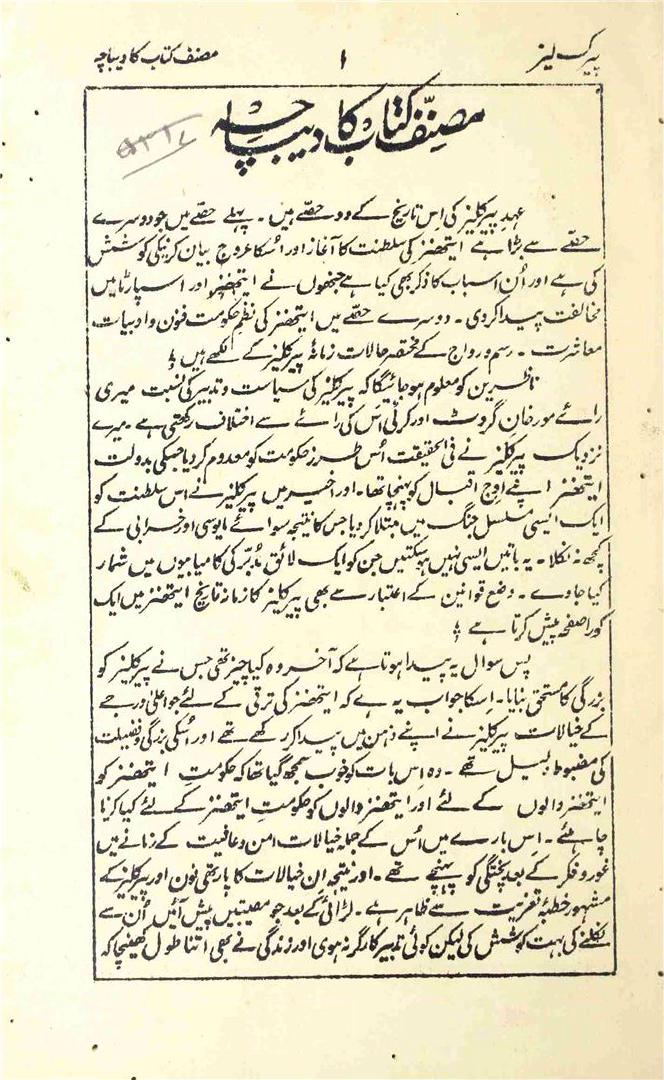 پیرکلیز ۱ مصنف کتاب کا دیباچہ
مصنّف کتاب کا دیباچہ
عہدِ پیرکلیز کی اِس تاریخ کے دو حصّے ہیں ۔ پہلے حصّے میں جو دوسرے
حصّے سے بڑا ہے ایتھنز کی سلطنت کا آغاز اور اُسکا عروج بیان کرنیکی کوشش
کی ہے اور اُن اسباب کا ذکر بھی کیا ہے جنھوں نے ایتھنز اور اسپارٹا میں
مخالفت پیدا کر دی ۔ دوسرے حصّے میں ایتھنز کی نظمِ حکومت فنون و ادبیات
معاشرت ۔ رسم و رواج کے مختصر حالات زمانۂ پیرکلیز کے لکھے ہیں ۔
ناظرین کو معلوم ہو جائیگا کہ پیرکلیز کی سیاست و تدبیر کی نسبت میری
رائے مورخان گروٹ اور کرٹی اس کی رائے سے اختلاف رکھتی ہے ۔ میرے
نزدیک پیرکلیز نے فی الحقیقت اُس طرز حکومت کو معدوم کر دیا جسکی بدولت
ایتھنز اپنے اوجِ اقبال کو پہنچا تھا ۔ اور اخیر میں پیرکلیز نے اس سلطنت کو
ایک ایسی مسلسل جنگ میں مبتلا کر دیا جس کا نتیجہ سوائے مایوسی اور خرابی کے
کچھ نہ نکلا ۔ یہ باتیں ایسی نہیں ہو سکتیں جن کو ایک لائق مدبّر کی کامیابیوں میں شمار
کیا جاوے ۔ وضع قوانین کے اعتبار سے بھی پیرکلیز کا زمانہ تاریخ ایتھنز میں ایک
کورا صفحہ پیش کرتا ہے ۔
پس سوال یہ پیدا ہوتا ہے کہ آخر وہ کیا چیز تھی جس نے پیرکلیز کو
بزرگی کا مستحق بنایا ۔ اسکا جواب یہ ہے کہ ایتھنز کی ترقی کے لئے جو اعلیٰ درجے
کے خیالات پیرکلیز نے اپنے ذہن میں پیدا کر رکھے تھے اور اُسکی بزرگی و فضیلت
کی مضبوط دلیل تھے ۔ وہ اِس بات کو خوب سمجھ گیا تھا کہ حکومت ایتھنز کو
ایتھنز والوں کے لئے اور ایتھنز والوں کو حکومتِ ایتھنز کے لئے کیا کرنا
چاہئے ۔ اِس بارے میں اُس کے جملہ خیالات امن و عافیت کے زمانے میں
غور و فکر کے بعد پختگی کو پہنچے تھے ۔ اور نتیجہ اِن خیالات کا پارتھی نون اور پیرکلیز کے
مشہور خطبۂ تعزیت سے ظاہر ہے ۔ لڑائی کے بعد جو مصیبتیں پیش آئیں اُن سے
نکلنے کی بہت کوشش کی لیکن کوئی تدبیر کارگر نہ ہوئی اور زندگی نے بھی اتنا طول کھینچا کہ